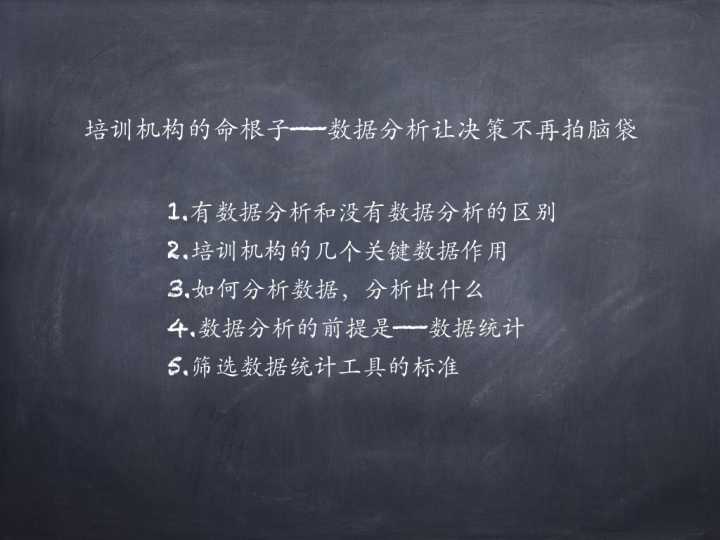 培训机构的命根子——数据分析让决策不再拍脑袋
1.有数据分析和没有数据分析的区别
2.培训机构的几个关键数据作用
3.如何分析数据，分析出什么
4.数据分析的前提是——数据统计
5.筛选数据统计工具的标准